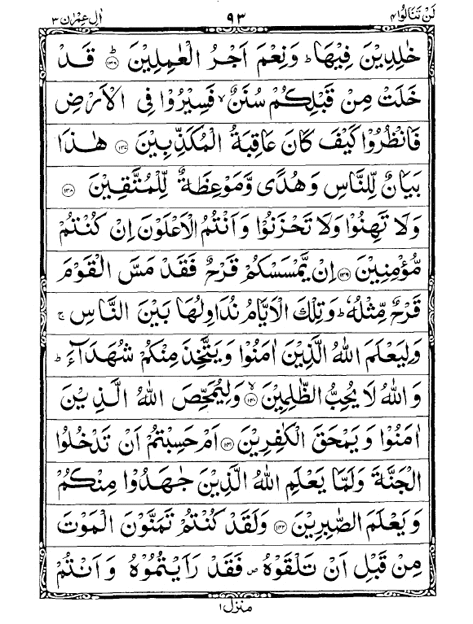 لَنْ تَنَالُوا ۴ ۹۳ اٰلِ عِمْرٰن ۳
خٰلِدِيْنَ فِيْهَا ؕ وَنِعْمَ اَجْرُ الْعٰمِلِيْنَ ؕ۝۱۳۶ قَدْ
خَلَتْ مِنْ قَبْلِكُمْ سُنَنٌ ۙ فَسِيْرُوْا فِى الْاَرْضِ
فَانْظُرُوْا كَيْفَ كَانَ عَاقِبَةُ الْمُكَذِّبِيْنَ ۝۱۳۷ هٰذَا
بَيَانٌ لِّلنَّاسِ وَهُدًى وَّمَوْعِظَةٌ لِّلْمُتَّقِيْنَ ۝۱۳۸
وَلَا تَهِنُوْا وَلَا تَحْزَنُوْا وَاَنْتُمُ الْاَعْلَوْنَ اِنْ كُنْتُمْ
مُّؤْمِنِيْنَ ۝۱۳۹ اِنْ يَّمْسَسْكُمْ قَرْحٌ فَقَدْ مَسَّ الْقَوْمَ
قَرْحٌ مِّثْلُهٗ ؕ وَتِلْكَ الْاَيَّامُ نُدَاوِلُهَا بَيْنَ النَّاسِ ۚ
وَلِيَعْلَمَ اللّٰهُ الَّذِيْنَ اٰمَنُوْا وَيَتَّخِذَ مِنْكُمْ شُهَدَآءَ ؕ
وَاللّٰهُ لَا يُحِبُّ الظّٰلِمِيْنَ ۙ۝۱۴۰ وَلِيُمَحِّصَ اللّٰهُ الَّذِيْنَ
اٰمَنُوْا وَيَمْحَقَ الْكٰفِرِيْنَ ۝۱۴۱ اَمْ حَسِبْتُمْ اَنْ تَدْخُلُوا
الْجَنَّةَ وَلَمَّا يَعْلَمِ اللّٰهُ الَّذِيْنَ جٰهَدُوْا مِنْكُمْ
وَيَعْلَمَ الصّٰبِرِيْنَ ۝۱۴۲ وَلَقَدْ كُنْتُمْ تَمَنَّوْنَ الْمَوْتَ
مِنْ قَبْلِ اَنْ تَلْقَوْهُ ۪ فَقَدْ رَاَيْتُمُوْهُ وَاَنْتُمْ
منزل ۱